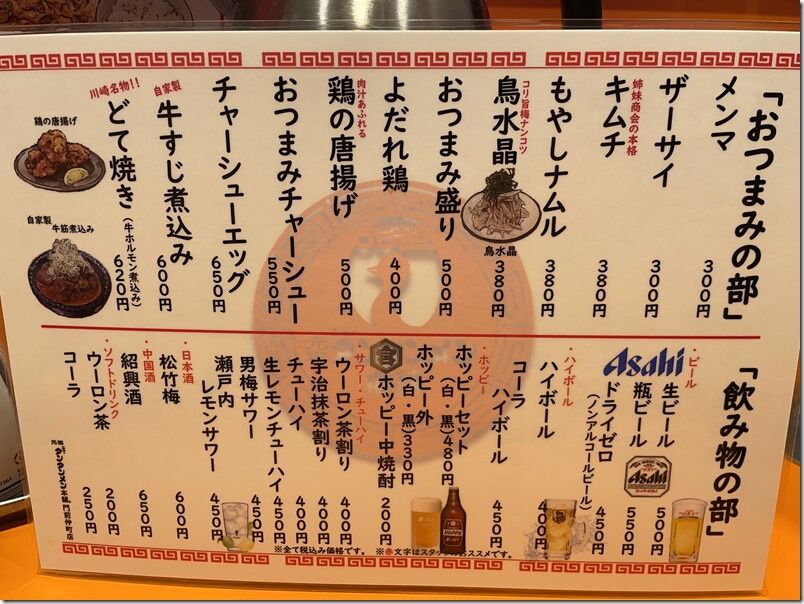 「おつまみの部」
メンマ
300円
ザーサイ
300円
姉妹商会の本格
キムチ
380円
もやしナムル
380円
コリ旨梅ナンコツ
鳥水晶
380円
鳥水晶
おつまみ盛り
500円
よだれ鶏
400円
肉汁あふれる
鶏の唐揚げ
500円
おつまみチャーシュー
550円
チャーシューエッグ
650円
自家製
牛すじ煮込み
600円
川崎名物!!
どて焼き
(牛ホルモン煮込み)
620円
鶏の唐揚げ
自家製
牛筋煮込み
「飲み物の部」
・ビール
Asahi
生ビール
500円
瓶ビール
550円
ドライゼロ
(ノンアルコールビール)
450円
Asahi
・ハイボール
ハイボール
400円
コーラ
ハイボール
450円
・ホッピー
ホッピーセット
(白・黒)480円
ホッピー外
(白・黒)330円
ホッピー中焼酎
200円
・サワー・チューハイ
ウーロン茶割り
400円
宇治抹茶割り
400円
チューハイ
400円
生レモンチューハイ
450円
男梅サワー
450円
瀬戸内
レモンサワー
450円
・日本酒
松竹梅
600円
・中国酒
紹興酒
650円
・ソフトドリンク
ウーロン茶
200円
コーラ
250円
元祖
タンタンメン本舗
門前仲町店
※全て税込み価格です。
※赤文字はスタッフのおススメです。